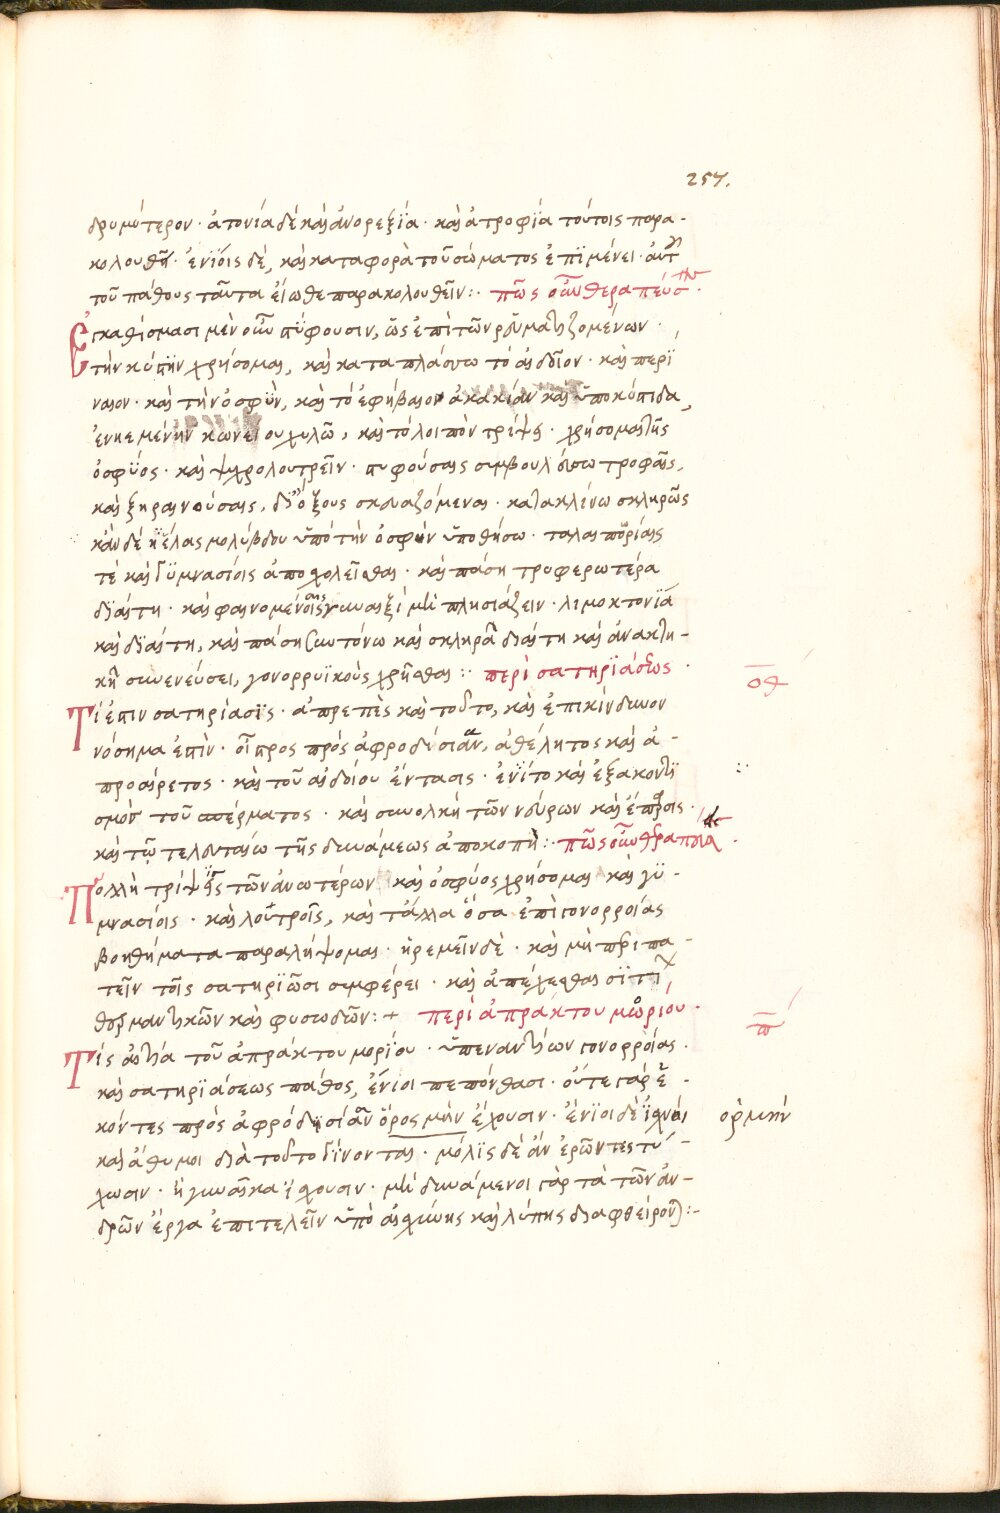 257.
δρυμύτερον · ἀτονία δὲ καὶ ἀνορεξΐα · καὶ ἀτροφΐα τούτοις παρα-
κολουθῆ · ἐνΐοις δὲ, καὶ καταφορὰ τοῦ σώματος ἐπϊμένει · ἀντὶ
τοῦ πάθους ταῦτα εἴωθε παρακολουθεῖν :· πῶς οὖν θεραπεύσ
Ἐγκαθίσμασι μὲν οὖν πΰφουσιν, ὡς ἐπὶ τῶν ρευματιζομένων ·
τὴν κύπϊν χρήσομαι, καὶ καταπλάσσω τὸ αἰδοῖον · καὶ περϊ
ναιον · καὶ τὴν ὀσφϋν, καὶ τὸ ἐφήβαιον ἀκακίαν καὶ ὑποκύπιδα,
ἐνηεμένην κωνείου χυλῶ, καὶ τὸ λοιπὸν τρέψει · χρήσομαι τῆς
ὀσφϋος · καὶ ψυχρολουτρεῖν · πυφούσαις συμβουλεύσω τροφαῖς,
καὶ ξηραινούσαις, δι' ὄξους σκευαζόμεναι · κατακλίνω σκληρῶς
κἂν δὲ πέλας μολύβδου ὑπὸ τὴν ὀσφὺν ὑποθήσω · ταλαιπωρίαις
τὲ καὶ γϋμνασίοις ἀποχολεῖσθαι · καὶ πάση τρυφερωτέρα
διαίτη · καὶ φαινομένοις γυναιξὶ μὴ πλησιάζειν · λιμοκτονΐα
καὶ διαίτη, καὶ πάση συντόνω καὶ σκληρᾶ διαίτη καὶ ἀνακτη-
κῆ συνενεύσει, γονορροϊκοὺς χρῆσθαι :· περὶ σατηρϊάσεως ·
οθ
Τί ἐπιν σατηρίασϊς · ἀπρεπὲς καὶ τοῦτο, καὶ ἐπικίνδυνον
νόσημα ἐπὶν · οἶπρος πρὸς ἀφροδίσιαν, ἀθέλητος καὶ ἀ-
προαίρετος · καὶ τοῦ αἰδοίου ἔντασις · ἐνΐτο καὶ ἐξακοντϊ
σμὸν τοῦ σπέρματος · καὶ συνολκὴ τῶν νεύρων καὶ ἔπαρσις ·
καὶ τῷ τελευταίω τῆς δυνάμεως ἀποκοπὴ :· πῶς οὖν θεραπεία
Πολλὴ τρίψϊς τῶν ἀνωτέρων καὶ ὀσφύος χρήσομαι καὶ γϋ-
μνασίοις · καὶ λουτροῖς, καὶ τἄλλα ὅσα ἐπὶ γονορροίας
βοηθήματα παραλήψομαι · ἠρεμεῖν δὲ · καὶ μὴ περιπα-
τεῖν τοῖς σατηρϊῶσι συμφέρει · καὶ ἀπέχεσθαι σϊτϊ
θερμαντικῶν καὶ φυσωδῶν :+ περὶ ἀπράκτου μωρίου ·
π
Τίς αἰτία τοῦ ἀπράκτου μορΐου · ὑπεναντίων γονορροίας ·
καὶ σατηρϊάσεως πάθος, ἔνιοι πεπόνθασι · οὔτε γὰρ ἔ-
κόντες πρὸς ἀφρόδισίαν ὅρος μὴν ἔχουσιν · ἔνϊοι δὲ ἰχνοὶ
ὁρμὴν
καὶ ἄθυμοι διὰ τοῦτο γίνονται · μόλϊς δὲ ἂν ἐρῶντες τύ-
χωσιν · ἢ γυναῖκα ΐχουσιν · μὴ δυνάμενοι γὰρ τὰ τῶν ἀν-
δρῶν ἔργα ἐπιτελεῖν ὑπὸ αἰσχύνης καὶ λύπης διαφθείροντ :-